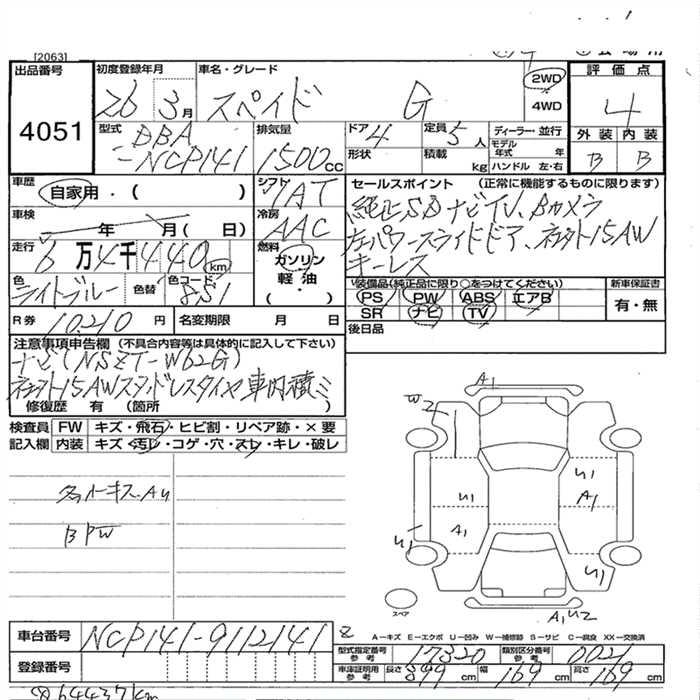 [2063]
出品番号 初度登録年月 車名・グレード 2WD 評価点
4051 26年 3月 スペイド G 4WD 4
型式 DBA-NCP141 排気量 1500cc ドア 4 定員 5人 ディーラー・並行 外装 内装
形状 積載 kg モデル年式 年 ハンドル 左・右 B B
車歴 自家用・( ) シフト IAT セールスポイント (正常に機能するものに限ります)
車検 年 月( 日) 冷房 AAC 純正SDナビTV、Bカメラ
走行 6万4千440km 燃料 ガソリン 軽油 ( ・ ) 左パワースライドドア、ネオクラ15AW
キーレス
色 ライトブルー 色替 色コード 8S1 装備品(純正品に限り○をつけてください) 新車保証書
PS PW ABS エアB 有・無
SR ナビ TV
R券 10,210円 名変期限 月 日 後日品
注意事項申告欄 (不具合内容等は具体的に記入して下さい)
ナビ(NSZT-W62G)
15AWスタッドレスタイヤ車内積ミ
修復歴 有 (箇所 )
検査員 FW キズ・飛石・ヒビ割・リペア跡・×要
記入欄 内装 キズ・汚レ・コゲ・穴・スレ・キレ・破レ
A1
W2
U1
U1 A1
A1
U1 U1
BPW
スペア
A1 U2
A−キズ E−エクボ U−凹み W−補修跡 S−サビ C−腐食 XX−交換済
車台番号 NCP141-9112141
型式指定番号 参考 17320 類別区分番号 参考 0021
登録番号 車庫証明用 参考 長さ 399cm 幅 169cm 高さ 169cm
64437km